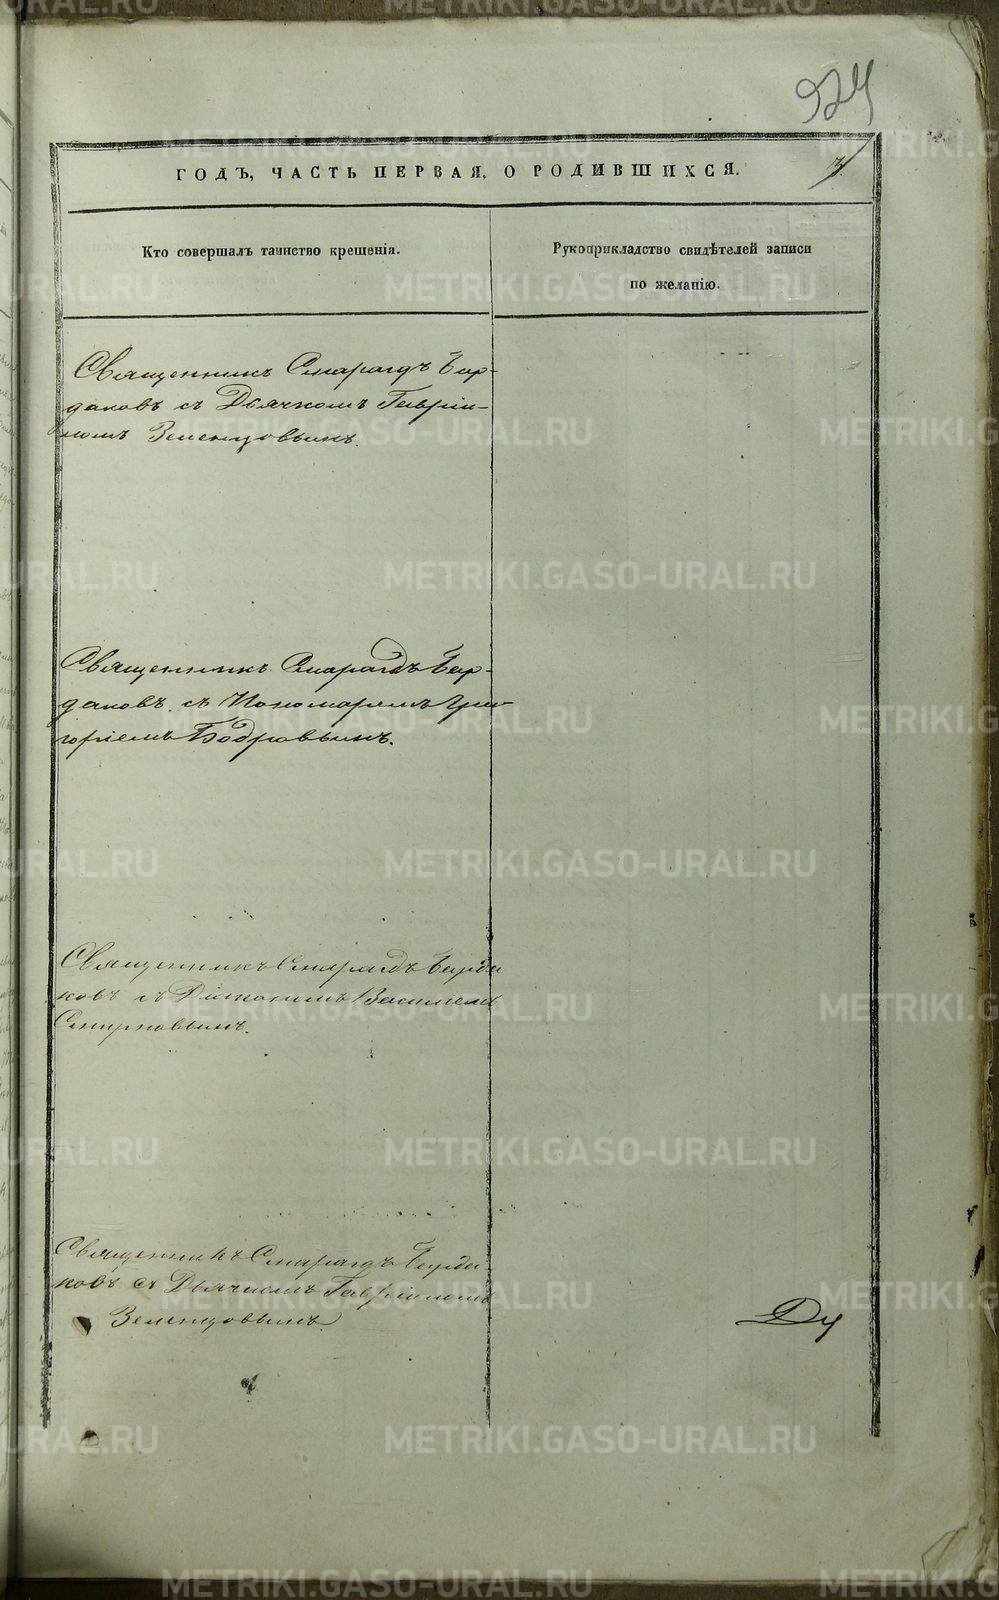 924
ГОДЪ, ЧАСТЬ ПЕРВАЯ, О РОДИВШИХСЯ.
Кто совершалъ таинство крещенія.
Рукоприкладство свидѣтелей записи
по желанію.
Священникъ Смарагдъ Бур-
даковъ съ Дьячкомъ Гавріи-
ломъ Зеленцовымъ.
Священникъ Смарагдъ Бур-
даковъ съ Пономаремъ Гри-
горіемъ Бодровымъ.
Священникъ Смарагдъ Бурда
ковъ съ Діакономъ Василіемъ
Смирновымъ.
Священникъ Смарагдъ Бурда
ковъ съ Дьячкомъ Гавріиломъ
Зеленцовымъ.
METRIKI.GASO-URAL.RU